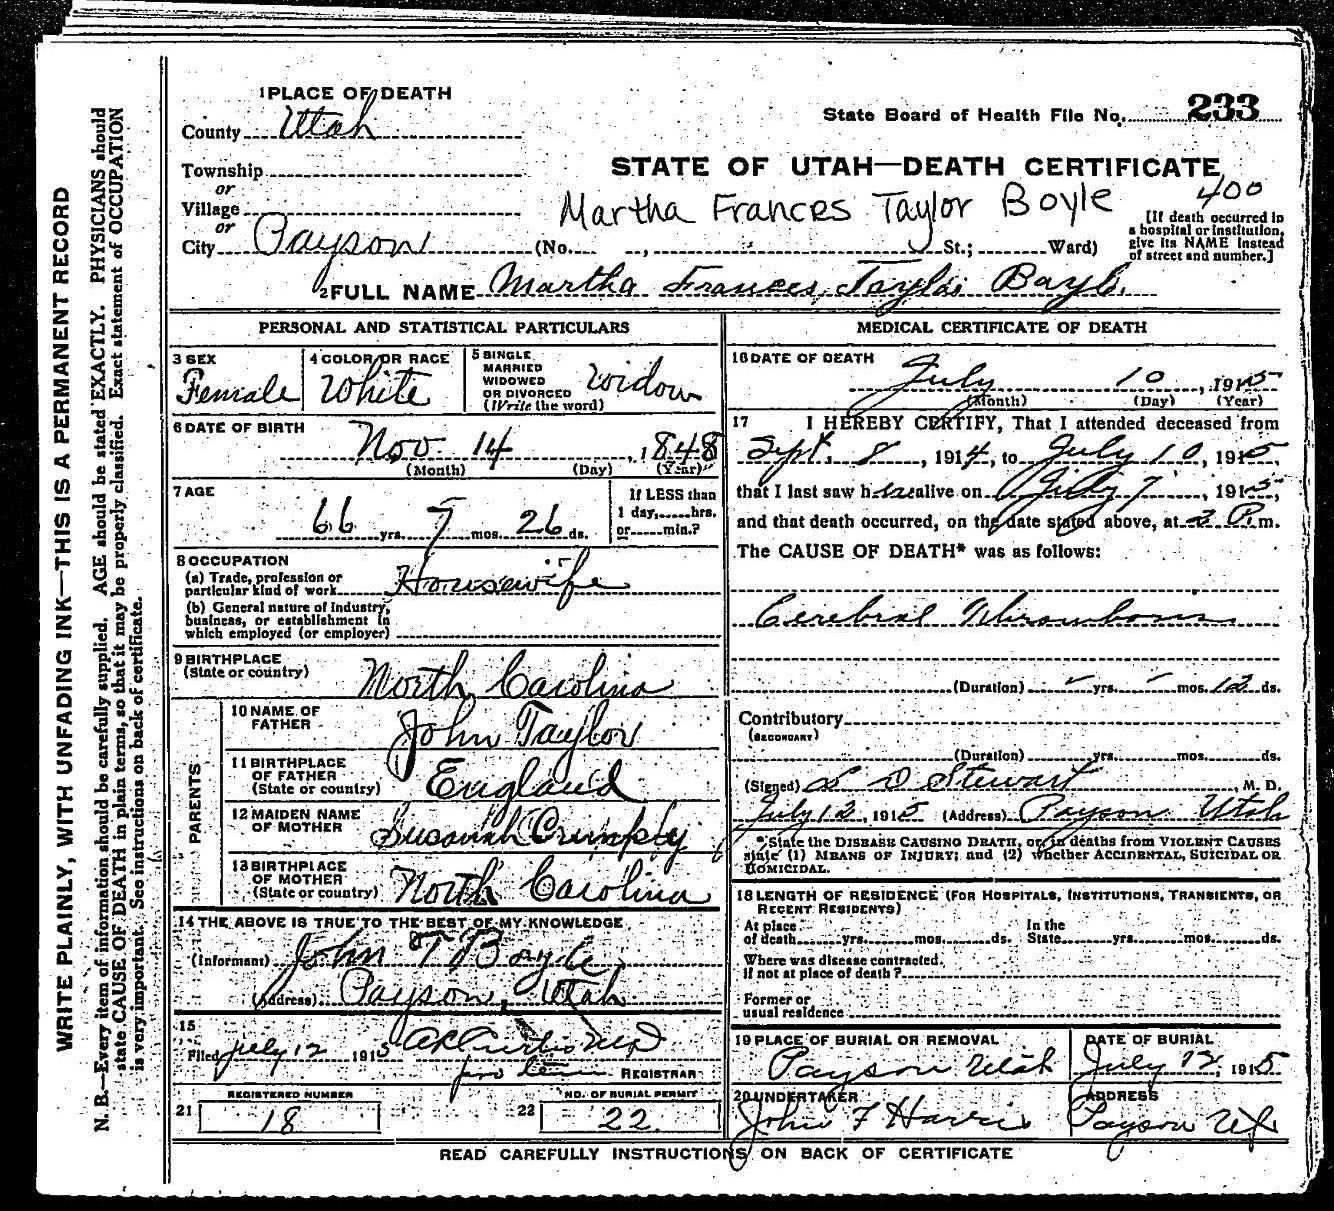 WRITE PLAINLY, WITH UNFADING INK—THIS IS A PERMANENT RECORD
N. B.—Every item of information should be carefully supplied. AGE should be stated EXACTLY. PHYSICIANS should
state CAUSE OF DEATH in plain terms, so that it may be properly classified. Exact statement of OCCUPATION
is very important. See instructions on back of certificate.
1 PLACE OF DEATH
County Utah
State Board of Health File No. 233
Township
or
Village
or
City Payson (No. , St.; Ward)
STATE OF UTAH—DEATH CERTIFICATE
400
Martha Frances Taylor Boyle
[If death occurred in
a hospital or institution,
give its NAME instead
of street and number.]
2 FULL NAME Martha Frances Taylor Boyle
PERSONAL AND STATISTICAL PARTICULARS
3 SEX
Female
4 COLOR OR RACE
White
5 SINGLE
MARRIED
WIDOWED
OR DIVORCED
(Write the word)
widow
6 DATE OF BIRTH
Nov. 14, 1848
(Month) (Day) (Year)
7 AGE
66 yrs. 7 mos. 26 ds.
If LESS than
1 day, hrs.
or min.?
8 OCCUPATION
(a) Trade, profession or
particular kind of work Housewife
(b) General nature of industry,
business, or establishment in
which employed (or employer)
9 BIRTHPLACE
(State or country)
North Carolina
PARENTS
10 NAME OF
FATHER
John Taylor
11 BIRTHPLACE
OF FATHER
(State or country)
England
12 MAIDEN NAME
OF MOTHER
Susanah Crumply
13 BIRTHPLACE
OF MOTHER
(State or country)
North Carolina
14 THE ABOVE IS TRUE TO THE BEST OF MY KNOWLEDGE
(Informant) John T Boyle
(Address) Payson, Utah
15
Filed July 12 1915 Curtis MD
REGISTRAR
21 REGISTERED NUMBER
18
22 NO. OF BURIAL PERMIT
22.
MEDICAL CERTIFICATE OF DEATH
16 DATE OF DEATH
July 10, 1915
(Month) (Day) (Year)
17 I HEREBY CERTIFY, That I attended deceased from
Sept. 8, 1914, to July 10, 1915,
that I last saw her alive on July 7, 1915,
and that death occurred, on the date stated above, at 2 P.m.
The CAUSE OF DEATH* was as follows:
Cerebral Thrombosis
(Duration) - yrs. - mos. 12 ds.
Contributory
(SECONDARY)
(Duration) yrs. mos. ds.
(Signed) L D Stewart, M. D.
July 12, 1915 (Address) Payson Utah
*State the DISEASE CAUSING DEATH, or, in deaths from VIOLENT CAUSES
state (1) MEANS OF INJURY; and (2) whether ACCIDENTAL, SUICIDAL OR
HOMICIDAL.
18 LENGTH OF RESIDENCE (FOR HOSPITALS, INSTITUTIONS, TRANSIENTS, OR
RECENT RESIDENTS)
At place
of death yrs. mos. ds.
In the
State yrs. mos. ds.
Where was disease contracted,
if not at place of death?
Former or
usual residence
19 PLACE OF BURIAL OR REMOVAL
Payson Utah
DATE OF BURIAL
July 12, 1915
20 UNDERTAKER
John F Harris
ADDRESS
Payson Ut
READ CAREFULLY INSTRUCTIONS ON BACK OF CERTIFICATE